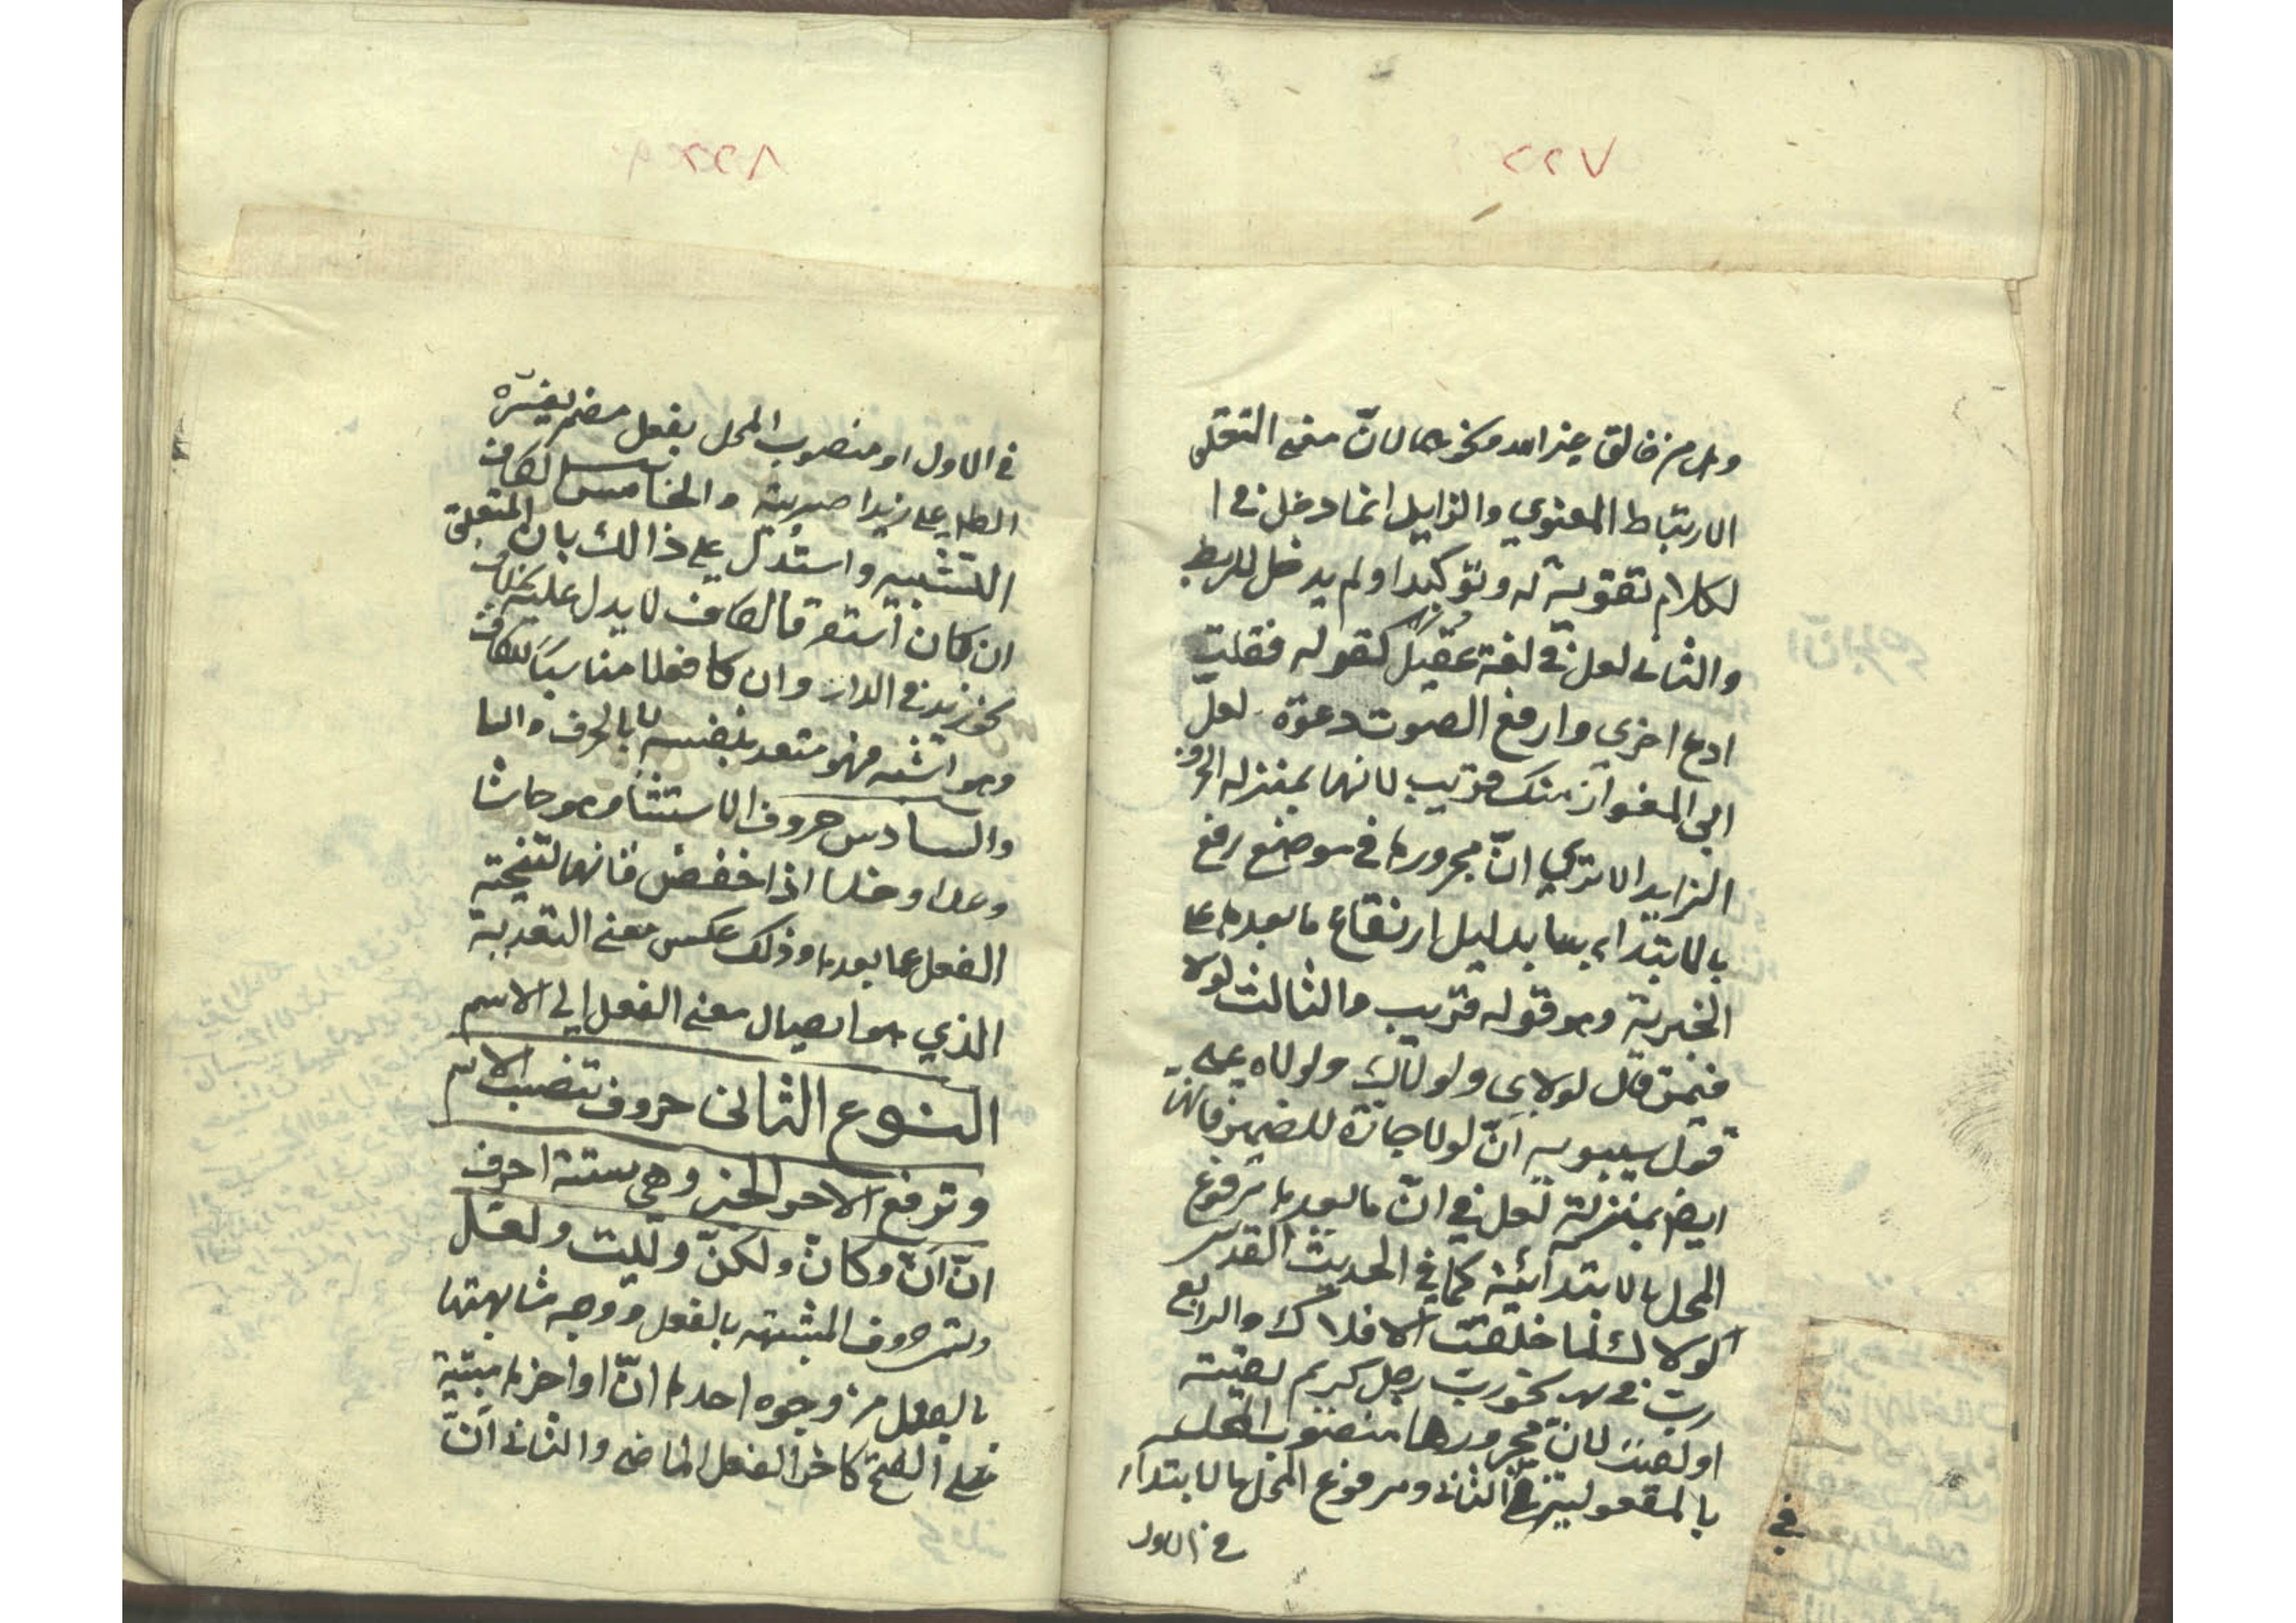 ٢٢٧
وهل من خالق غير الله ونحوهما لانّ معنى التعلق
الارتباط المعنوي والزايل انما دخل في ا
لكلام تقوية له وتوكيدا ولم يدخل للربط
والثاني لعل في لغة عقيل كقوله فقلت
ادع اخرى وارفع الصوت دعوة لعل
ابي المغوار منك قريب لانها بمنزله الحروف
الزايد الا ترى انّ مجرورها في موضع رفع
بالابتداء بها بدليل ارتفاع ما بعدها على
الخبرية وهو قوله قريب والثالث لولا
فيمن قال لولاي ولولاك ولولاه على
قول سيبويه انّ لولا جارة للضمير فانها
ايضا بمنزلة لعل في انّ ما بعدها مرفوع
المحل بالابتدائية كما في الحديث القدسي
لولاك لما خلقت الافلاك والرابع
ربّ في نحو ربّ رجل كريم لقيته
او لقيت لانّ مجرورها منصوب المحل
بالمفعولية في الثاني ومرفوع المحل بالابتداء
في الاول
في
٢٢٨
في الاول او منصوب المحل بفعل مضمر يفسّره
على زيدا ضربته والخامس الكاف
التشبيه واستدل على ذالك بان المتعلق
ان كان استقر فالكاف لا يدل عليه بخلاف
نحو زيد في الدار وان كا فعلا مناسبا للكاف
وهو اشبه فهو متعد بنفسه لا بالحرف
والسادس حروف الاستثنا وهو حاشا
وعدا وخلا اذا خفضن فانها لتنحية
الفعل عما بعدها وذلك عكس معنى التعدية
الذي هو ايصال معنى الفعل الى الاسم
النوع الثاني حروف تنصب الاسم
وترفع الخبر وهي ستة احرف
انّ انّ وكانّ ولكنّ وليت ولعل
وتسمى حروف المشبهه بالفعل ووجه مشابهتها
بالفعل من وجوه احدها انّ اواخرها مبنية
على الفتح كاخر الفعل الماضي والثاني انّ